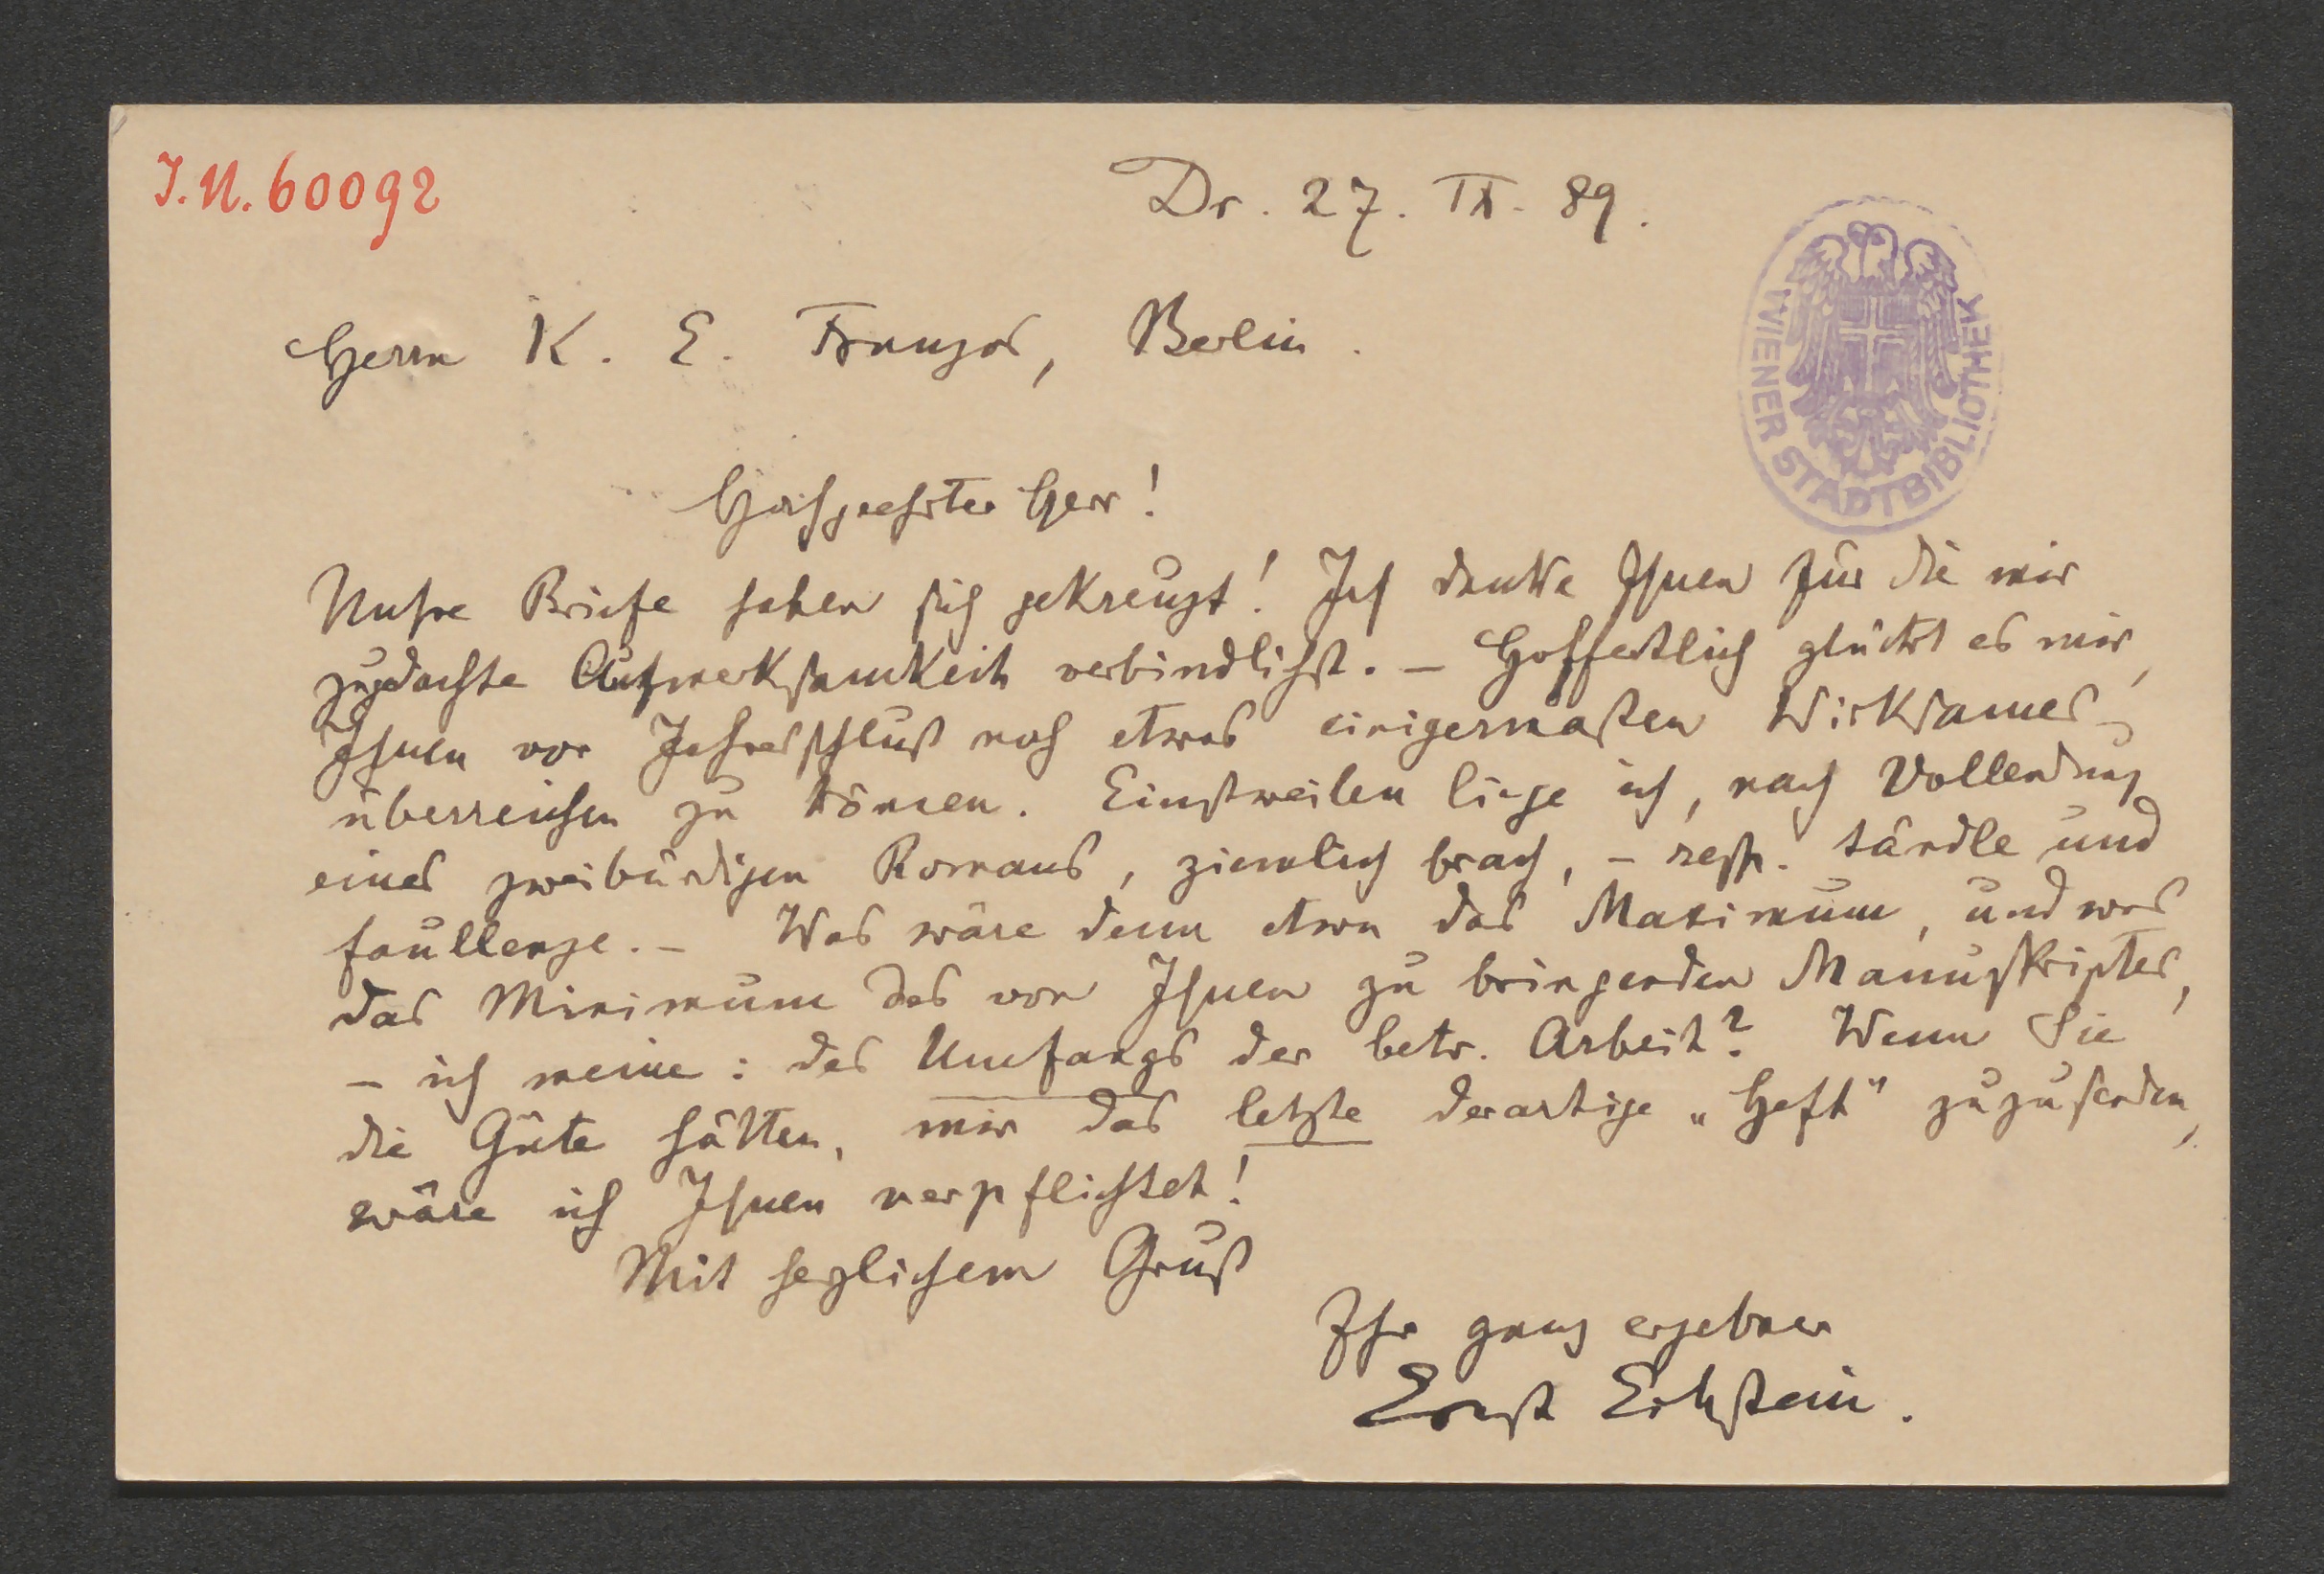 J.N. 60092
Dr. 27. IX. 89.
WIENER STADTBIBLIOTHEK
Herrn K. E. Franzos, Berlin.
Hochgeehrter Herr!
Unsre Briefe haben sich gekreuzt! Ich danke Ihnen für die mir
zugedachte Aufmerksamkeit verbindlichst. – Hoffentlich glückt es mir,
Ihnen vor Jahresschluß noch etwas einigermaßen Wirksames
überreichen zu können. Einstweilen liege ich, nach Vollendung
eines zweibändigen Romans, ziemlich brach, – resp. tändle und
faullenze. – Was wäre denn etwa das Maximum, und was
das Minimum des von Ihnen zu bringenden Manuskriptes,
– ich meine: des Umfangs der betr. Arbeit? Wenn Sie
die Güte hätten, mir das letzte derartige „Heft" zuzusenden,
wäre ich Ihnen verpflichtet!
Mit herzlichem Gruß
Ihr ganz ergebner
Ernst Eckstein.